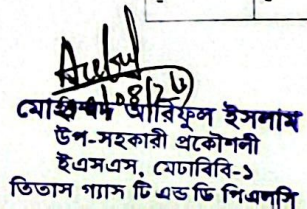 মোহাম্মদ আরিফুল ইসলাম
উপ-সহকারী প্রকৌশলী
ইএসএস, মেঢাবিবি-১
তিতাস গ্যাস টি এন্ড ডি পিএলসি